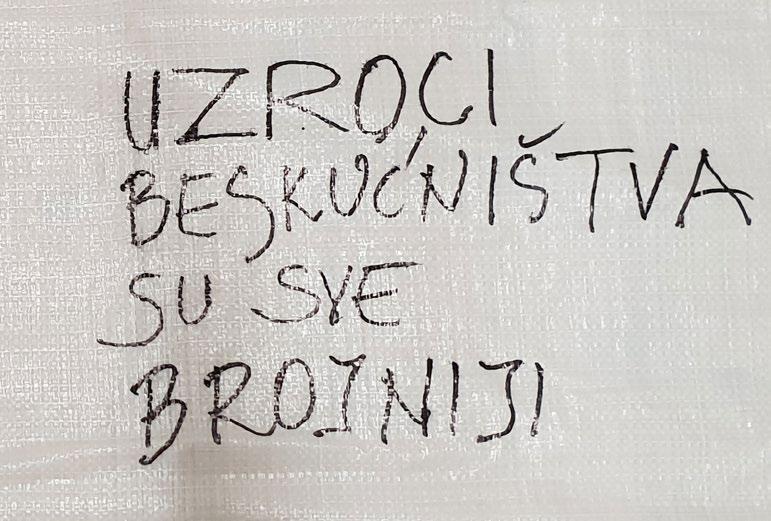 UZROCI
BESKUĆNIŠTVA
SU SVE
BROJNIJI